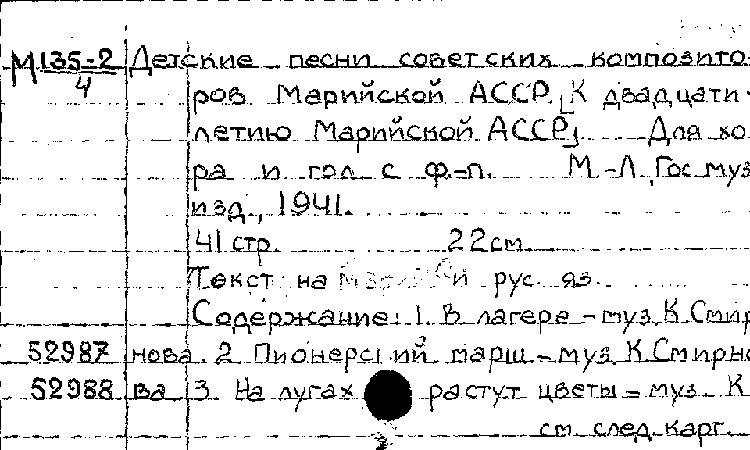 М135-2/4 Детские песни советских композито-
ров Марийской АССР. [К двадцати-
летию Марийской АССР]. Для хо-
ра и гол с ф.-п. М.-Л, Гос муз
изд., 1941.
41 стр. 22 см
Текст на и рус яз.
Содержание: 1. В лагере - муз. К. Смир
52987 нова. 2 Пионерский марш - муз К. Смирно
52988 ва 3. На лугах растут цветы - муз. К
см след. карт.